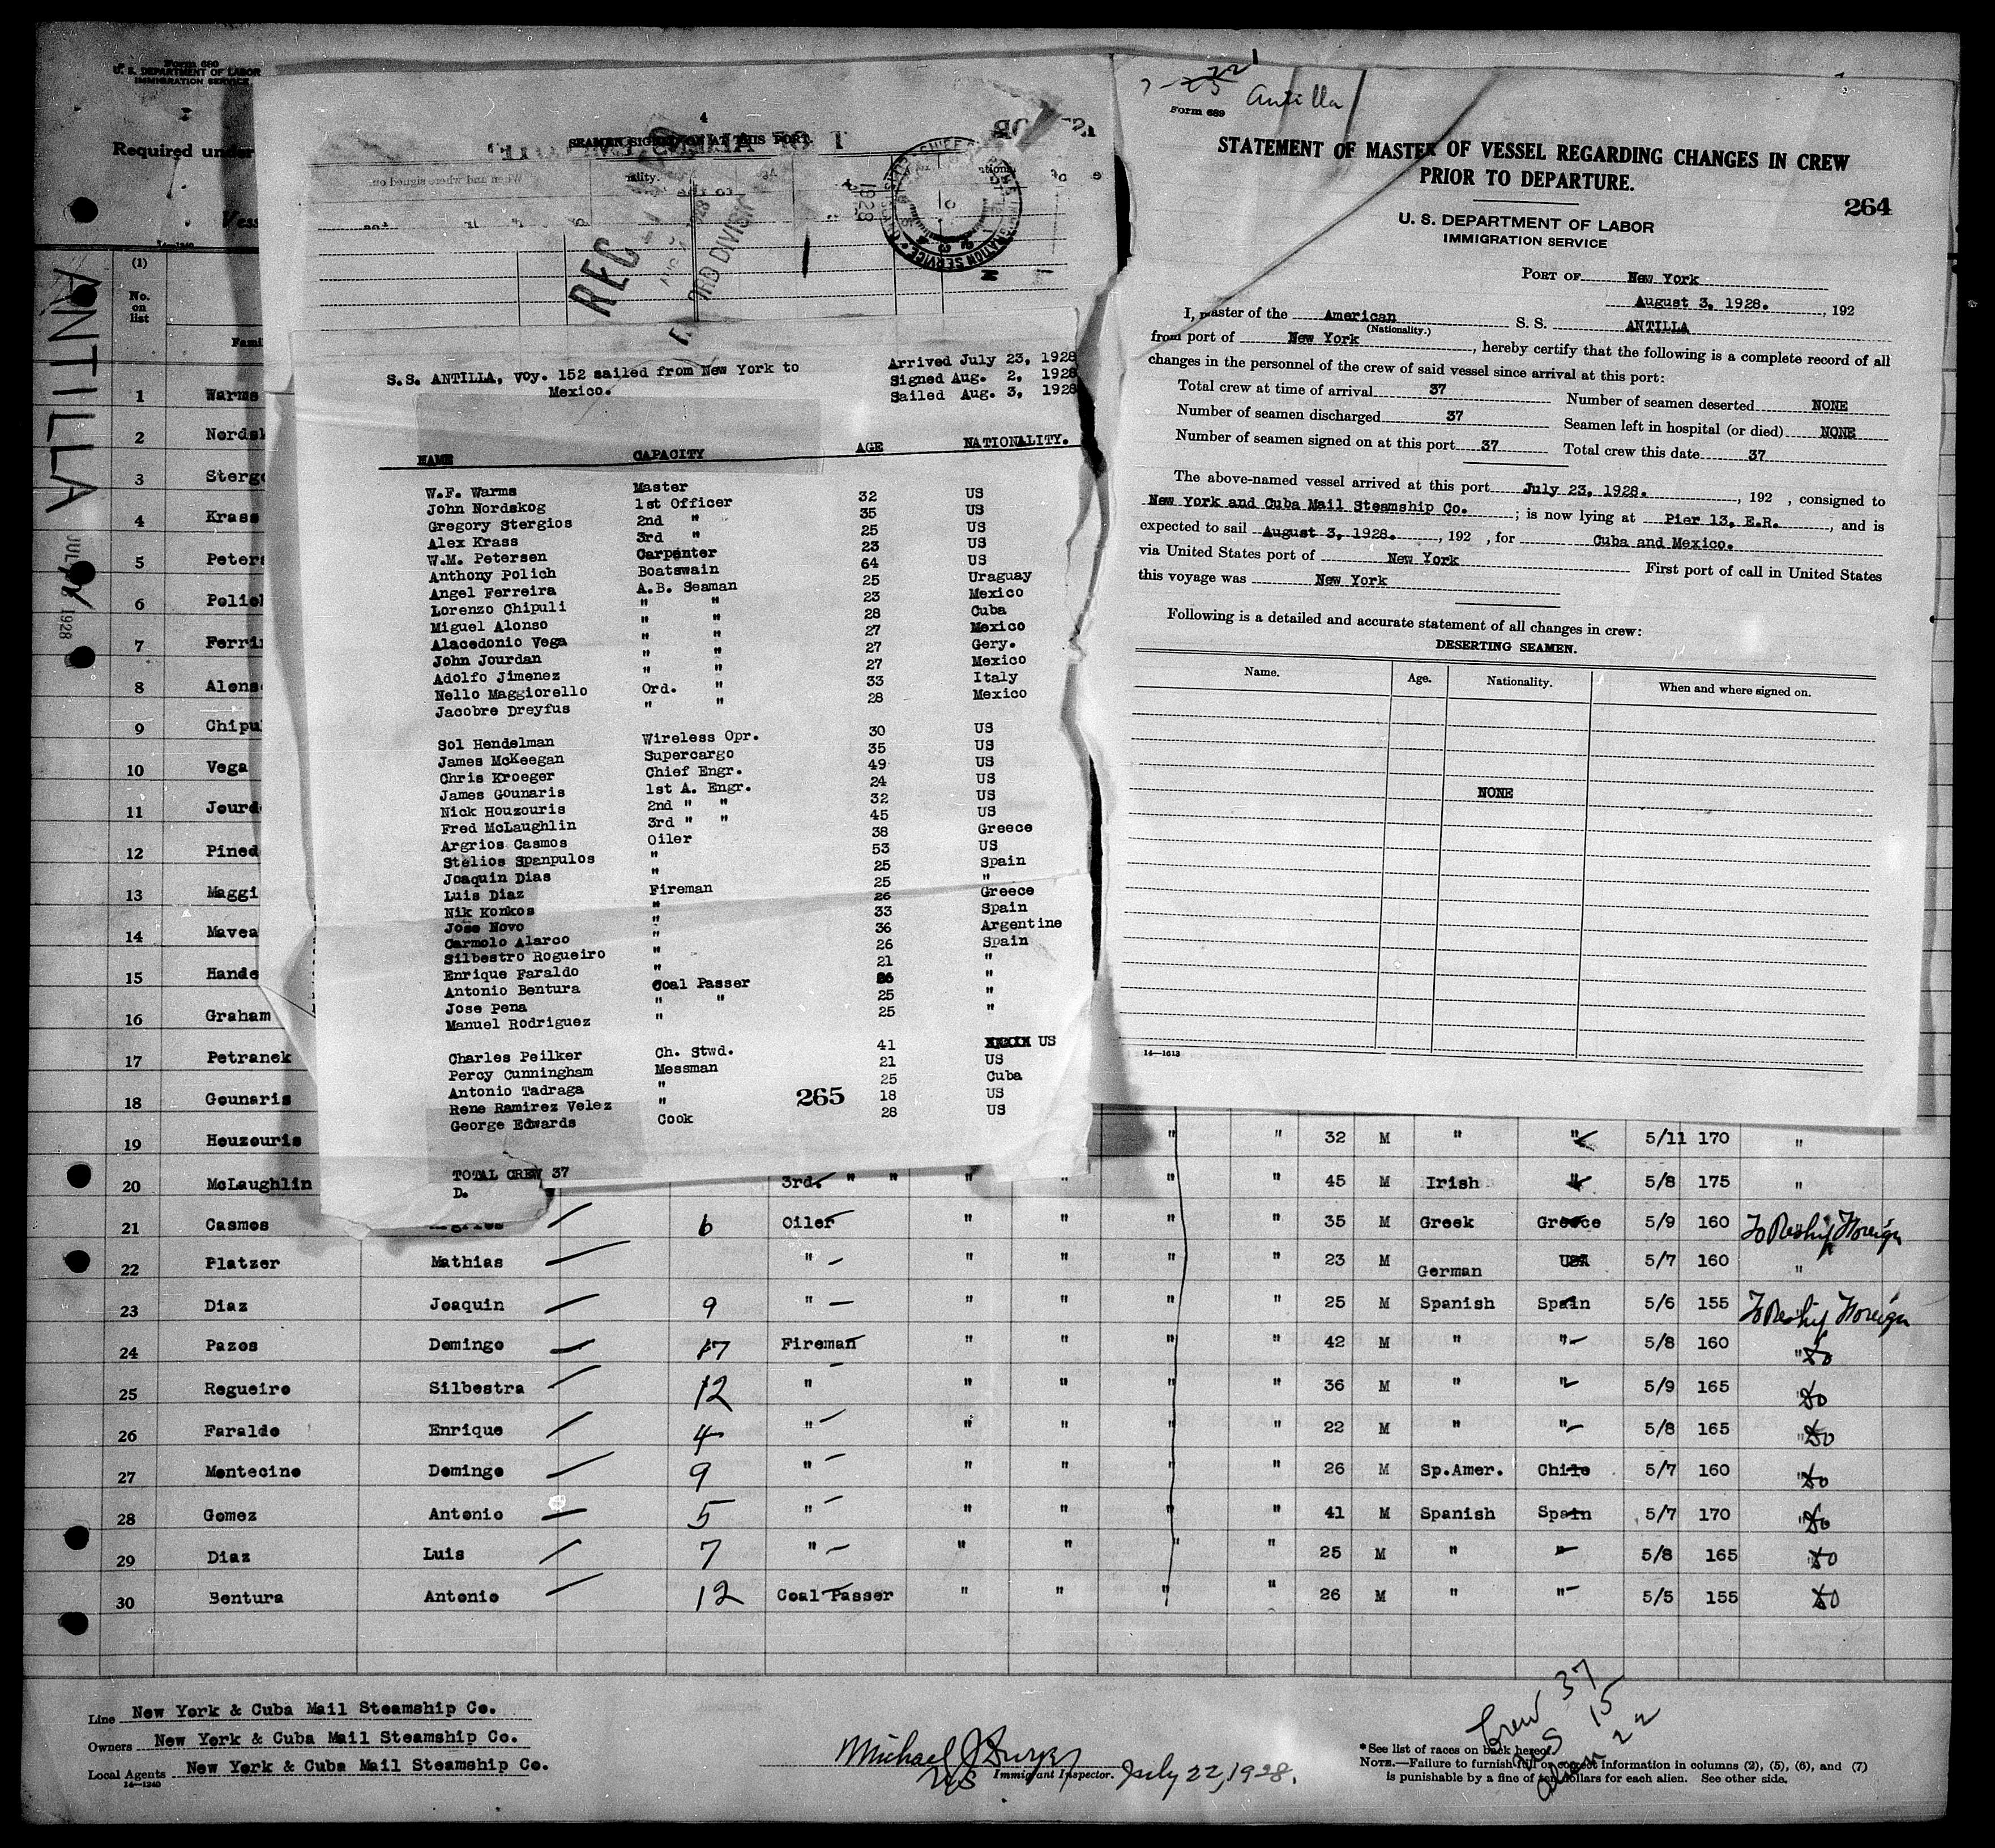 Form 680
U. S. DEPARTMENT OF LABOR
IMMIGRATION SERVICE
Required under
14—1240
ANTILLA
1928
(1)
No. on list
1 Warms
2
3
4 Krass
5
6
7
8
9
10 Vega
11
12
13
14
15
16 Graham
17 Petranek
18 Gounaris
19 Houzouris " " 32 M " " 5/11 170 "
20 McLaughlin 3rd. " " " " " " 45 M Irish " 5/8 175 "
21 Casmos 6 Oiler " " " " 35 M Greek Greece 5/9 160 To Reship Foreign
22 Platzer Mathias " " " " " 23 M German USA 5/7 160 "
23 Diaz Joaquin 9 " " " " " 25 M Spanish Spain 5/6 155 To Reship Foreign
24 Pazos Domingo 17 Fireman " " " " 42 M " " 5/8 160 " do
25 Regueiro Silbestra 12 " " " " " 36 M " " 5/9 165 do
26 Faraldo Enrique 4 " " " " " 22 M " " 5/8 165 " do
27 Montecino Domingo 9 " " " " " 26 M Sp.Amer. Chile 5/7 160 " do
28 Gomez Antonio 5 " " " " " 41 M Spanish Spain 5/7 170 " do
29 Diaz Luis 7 " " " " " 25 M " " 5/8 165 do
30 Bentura Antonio 12 Coal Passer " " " " 26 M " " 5/5 155 do
Line New York & Cuba Mail Steamship Co.
Owners New York & Cuba Mail Steamship Co.
Local Agents New York & Cuba Mail Steamship Co.
14—1240
July 22, 1928.
Immigrant Inspector.
Crew 37
US 15
Alien 22
* See list of races on back hereof.
NOTE.—Failure to furnish full or correct information in columns (2), (5), (6), and (7)
is punishable by a fine of ten dollars for each alien. See other side.
4
SEAMEN SIGNED ON AT THIS PORT.
1928
S.S. ANTILLA, voy. 152 sailed from New York to
Mexico.
Arrived July 23, 1928
Signed Aug. 2, 1928
Sailed Aug. 3, 1928
NAME CAPACITY AGE NATIONALITY.
W.F. Warms Master 32 US
John Nordskog 1st Officer 35 US
Gregory Stergios 2nd " 25 US
Alex Krass 3rd " 23 US
W.M. Petersen Carpenter 64 US
Anthony Polich Boatswain 25 Uraguay
Angel Ferreira A.B. Seaman 23 Mexico
Lorenzo Chipuli " " 28 Cuba
Miguel Alonso " " 27 Mexico
Alacedonio Vega " " 27 Gery.
John Jourdan " " 27 Mexico
Adolfo Jimenez " " 33 Italy
Nello Maggiorello Ord. " 28 Mexico
Jacobre Dreyfus " "
Sol Hendelman Wireless Opr. 30 US
James McKeegan Supercargo 35 US
Chris Kroeger Chief Engr. 49 US
James Gounaris 1st A. Engr. 24 US
Nick Houzouris 2nd " " 32 US
Fred McLaughlin 3rd " " 45 US
Argrios Casmos Oiler 38 Greece
Stelios Spanpulos " 53 US
Joaquin Dias " 25 Spain
Luis Diaz Fireman 25 "
Nik Konkos " 26 Greece
Jose Novo " 33 Spain
Carmolo Alarco " 36 Argentine
Silbestro Rogueiro " 26 Spain
Enrique Faraldo " 21 "
Antonio Bentura Coal Passer 26 "
Jose Pena " " 25 "
Manuel Rodriguez " 25 "
Charles Peilker Ch. Stwd. 41 US
Percy Cunningham Messman 21 US
Antonio Tadraga " 25 Cuba
Rene Ramirez Velez " 18 US
George Edwards Cook 28 US
265
TOTAL CREW 37
D.
Antilla
Form 689
STATEMENT OF MASTER OF VESSEL REGARDING CHANGES IN CREW
PRIOR TO DEPARTURE.
264
U. S. DEPARTMENT OF LABOR
IMMIGRATION SERVICE
PORT OF New York
August 3, 1928. , 192
I, master of the American S. S. ANTILLA
(Nationality.)
from port of New York , hereby certify that the following is a complete record of all
changes in the personnel of the crew of said vessel since arrival at this port:
Total crew at time of arrival 37 Number of seamen deserted NONE
Number of seamen discharged 37 Seamen left in hospital (or died) NONE
Number of seamen signed on at this port 37 Total crew this date 37
The above-named vessel arrived at this port July 23, 1928. , 192 , consigned to
New York and Cuba Mail Steamship Co. ; is now lying at Pier 13, E.R. , and is
expected to sail August 3, 1928. , 192 , for Cuba and Mexico.
via United States port of New York First port of call in United States
this voyage was New York
Following is a detailed and accurate statement of all changes in crew:
DESERTING SEAMEN.
Name. Age. Nationality. When and where signed on.
NONE
14—1613